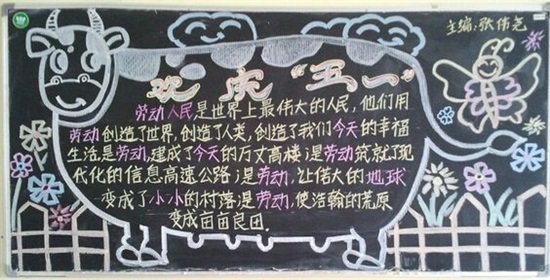 主编:张伟尧
欢庆“五一”
劳动人民是世界上最伟大的人民,他们用
劳动创造了世界,创造了人类,创造了我们今天的幸福
生活.是劳动,建成了今天的万丈高楼;是劳动筑就了现
代化的信息高速公路;是劳动,让偌大的地球
变成了小小的村落;是劳动,使浩翰的荒原
变成亩亩良田.